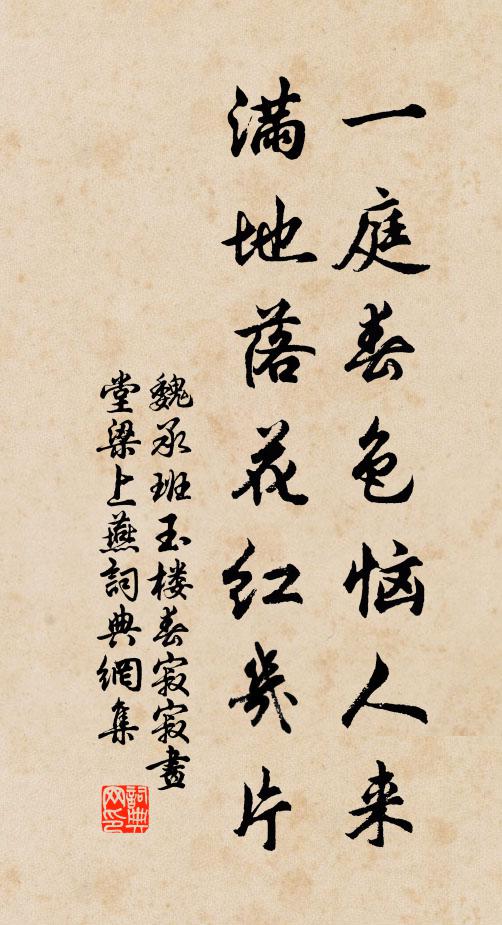 一庭春色恼人来
满地落花红幾片
魏承班玉楼春寂寂畫
堂梁上燕詞典網集
詞典网印